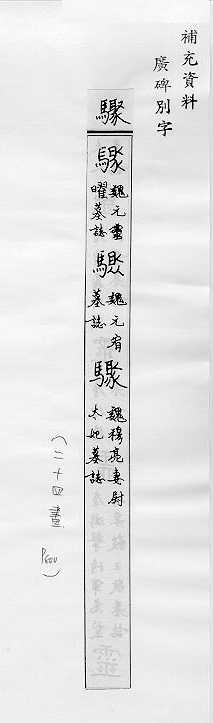 補充資料
廣碑別字
驟
驟 魏元靈曜墓誌
驟 魏元宥墓誌
驟 魏穆亮妻尉太妃墓誌
(二十四畫 P600)